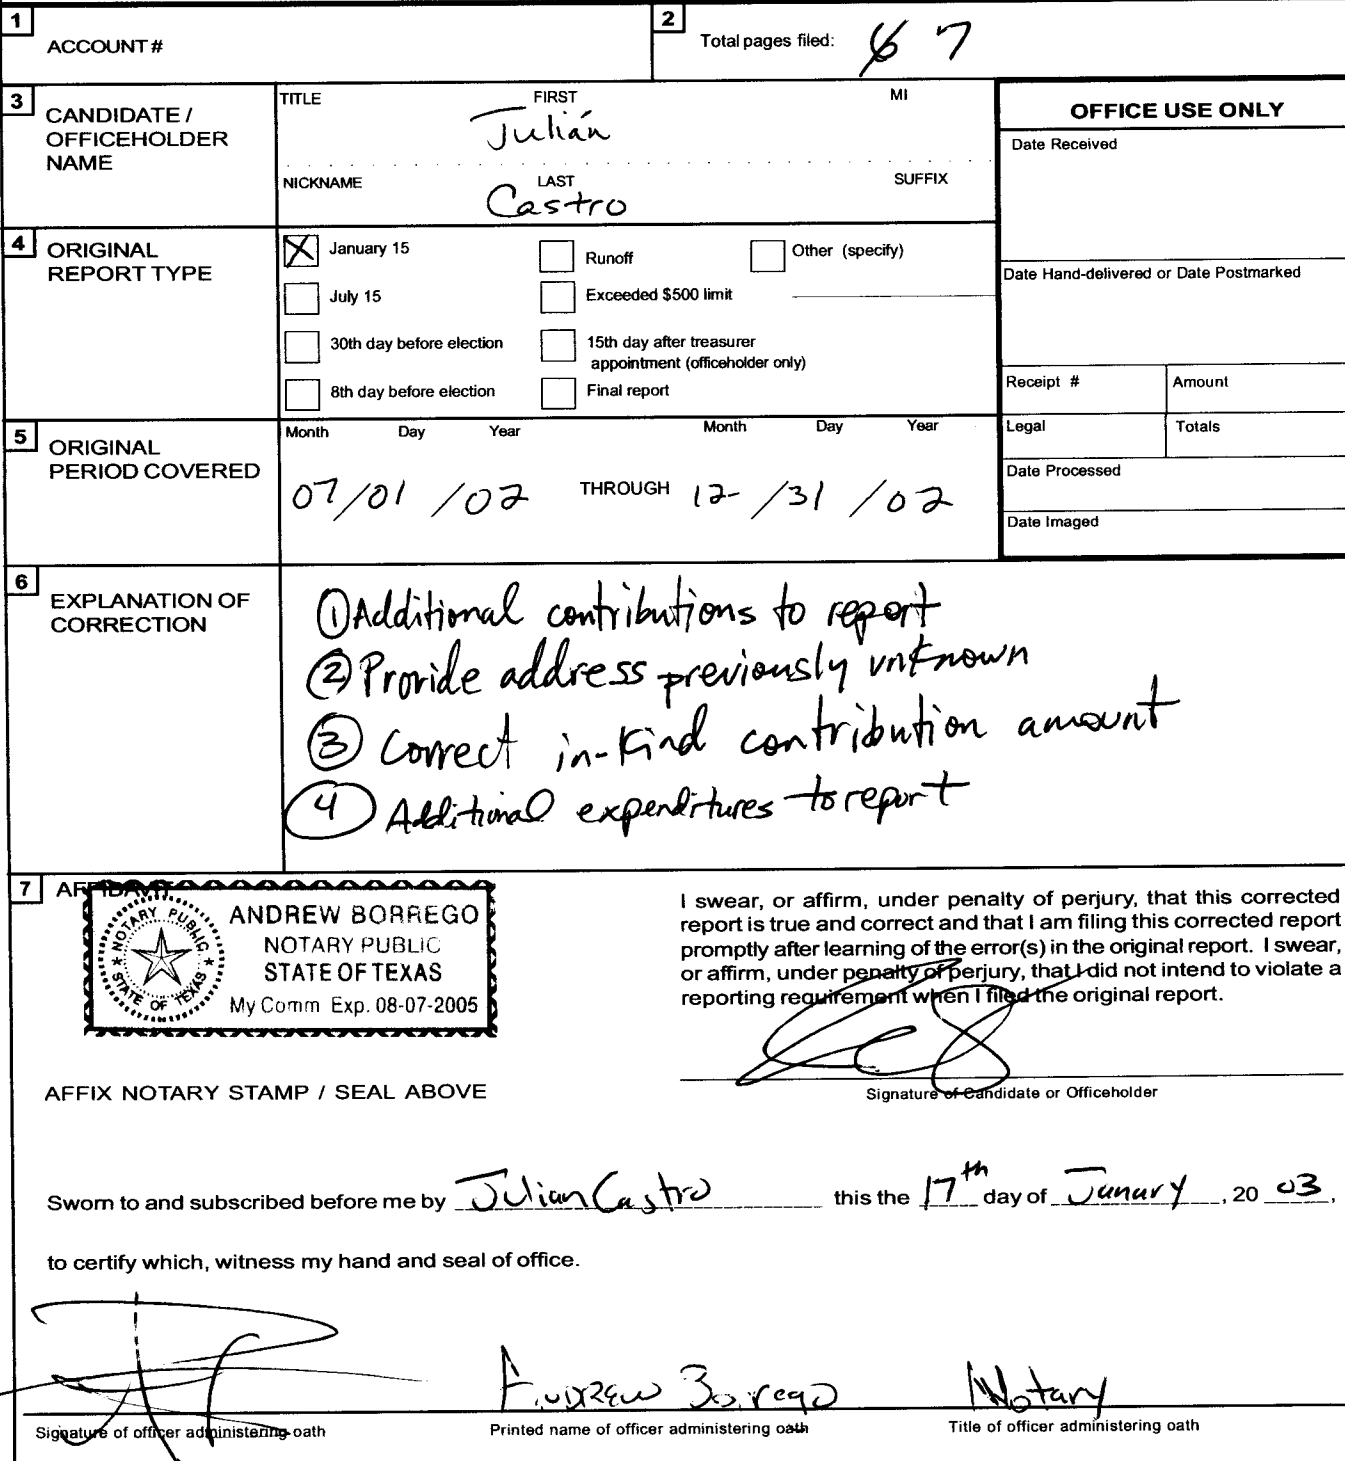 1 ACCOUNT #
2 Total pages filed: 6 7
3 CANDIDATE / OFFICEHOLDER NAME
TITLE FIRST MI
Julián
NICKNAME LAST SUFFIX
Castro
OFFICE USE ONLY
Date Received
Date Hand-delivered or Date Postmarked
Receipt # Amount
Legal Totals
Date Processed
Date Imaged
4 ORIGINAL REPORT TYPE
X January 15
Runoff
Other (specify)
July 15
Exceeded $500 limit
30th day before election
15th day after treasurer
appointment (officeholder only)
8th day before election
Final report
5 ORIGINAL PERIOD COVERED
Month Day Year Month Day Year
07/01/02 THROUGH 12/31/02
6 EXPLANATION OF CORRECTION
① Additional contributions to report
② Provide address previously unknown
③ Correct in-kind contribution amount
④ Additional expenditures to report
7 AFFIDAVIT
ANDREW BORREGO
NOTARY PUBLIC
STATE OF TEXAS
My Comm Exp. 08-07-2005
NOTARY PUBLIC
STATE OF TEXAS
I swear, or affirm, under penalty of perjury, that this corrected
report is true and correct and that I am filing this corrected report
promptly after learning of the error(s) in the original report. I swear,
or affirm, under penalty of perjury, that I did not intend to violate a
reporting requirement when I filed the original report.
Signature of Candidate or Officeholder
AFFIX NOTARY STAMP / SEAL ABOVE
Sworn to and subscribed before me by Julian Castro this the 17th day of Janury, 20 03,
to certify which, witness my hand and seal of office.
Andrew Borrego Notary
Signature of officer administering oath Printed name of officer administering oath Title of officer administering oath